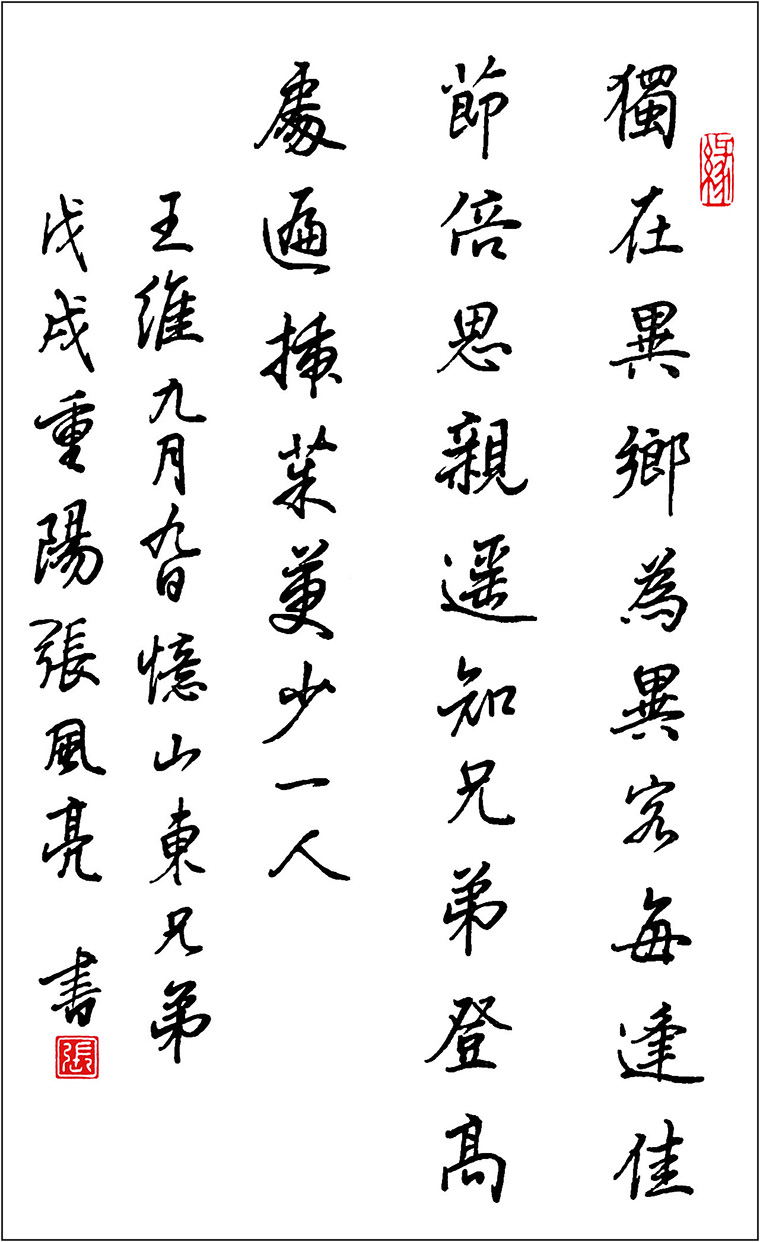 獨在異鄉為異客每逢佳
節倍思親遥知兄弟登高
處遍插茱萸少一人
王維九月九日憶山東兄弟
戊戌重陽張風亮 書
緣
張